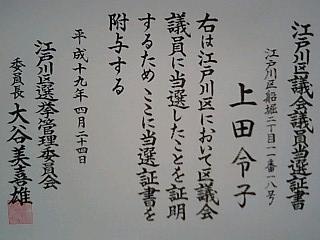 江戸川区議会議員当選証書
江戸川区船堀二丁目一一番一八号
上田令子
右は江戸川区において区議会
議員に当選したことを証明
するためここに当選証書を
附与する
平成十九年四月二十四日
江戸川区選挙管理委員会
委員長 大谷美喜雄